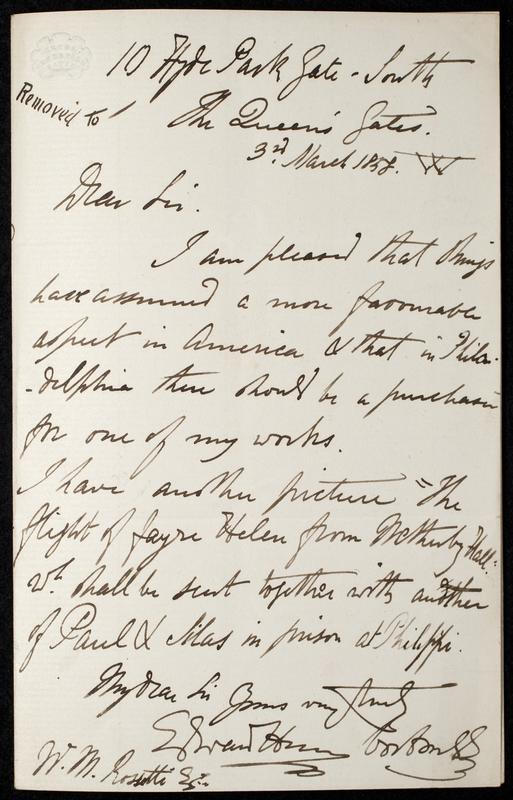 10 Hyde Park Gate - South
Removed to The Queen's Gate.
3rd March 1858. W
Dear Sir.
I am pleased that things
have assumed a more favourable
aspect in America & that in Phila-
-delphia there should be a purchaser
for one of my works.
I have another picture "The
flight of fayre Helen from Netherby Hall"
wh. shall be sent together with another
of Paul & Silas in prison at Philippi.
My dear Sir Yours very truly
Edward Henry Corbould
W. M. Rossetti Esq.